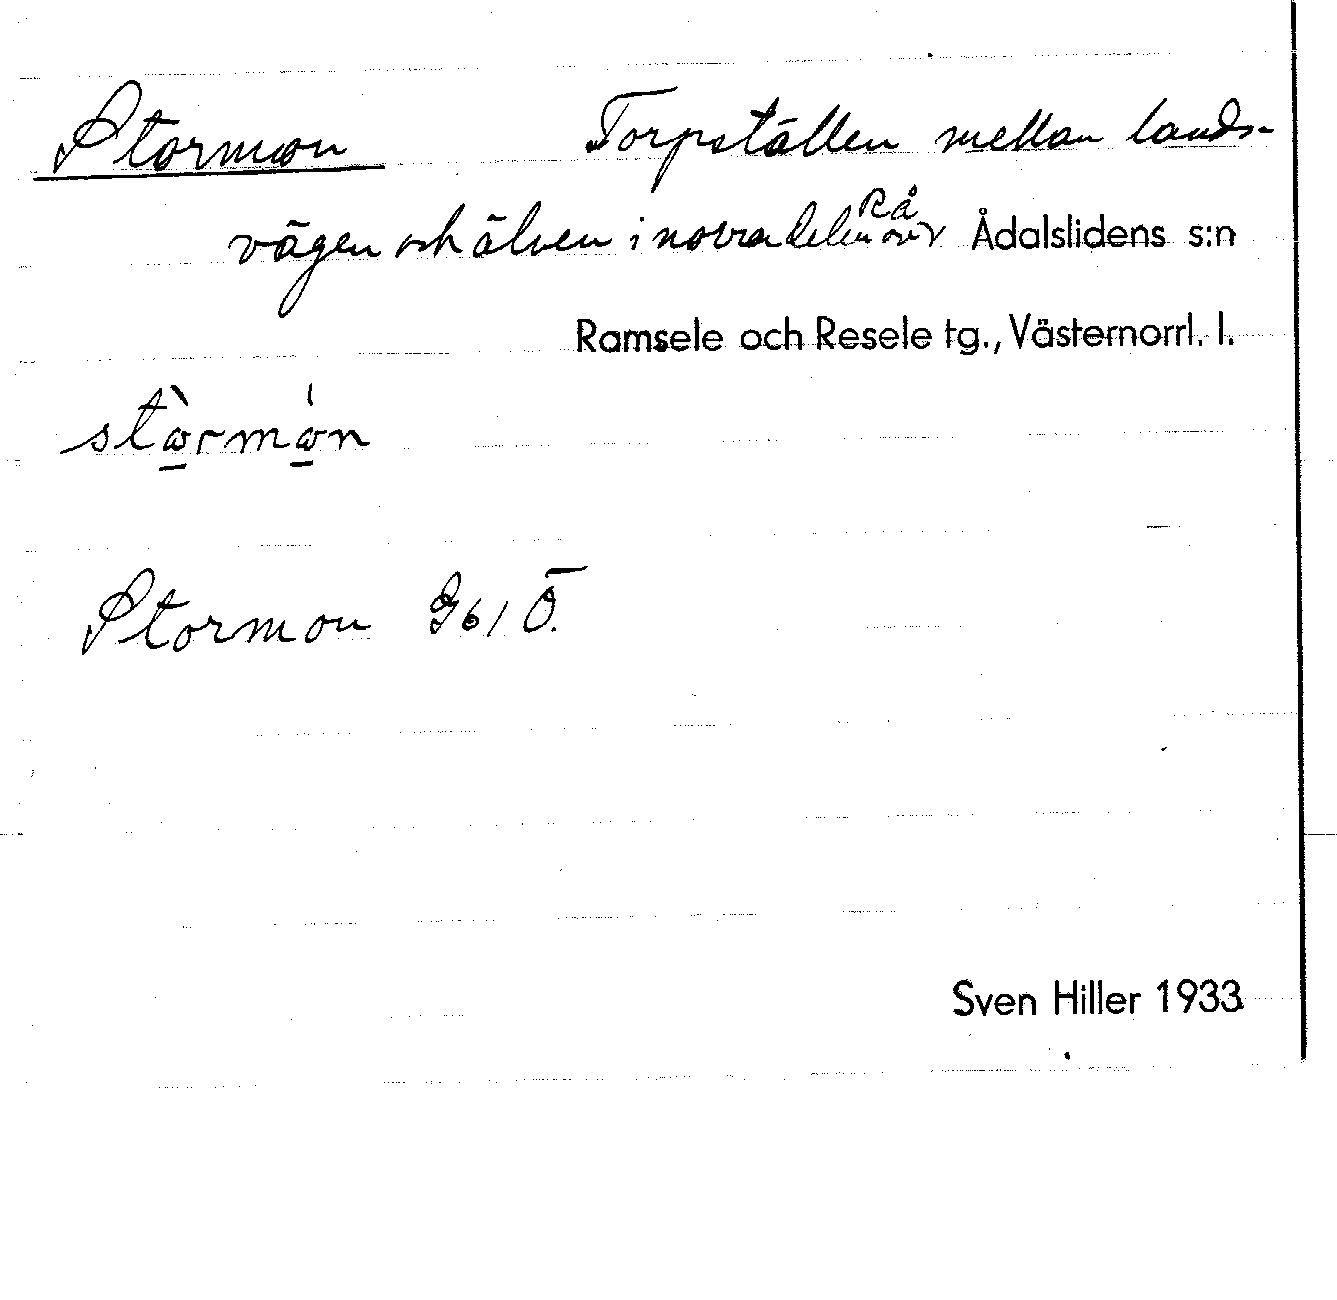 Stormon Torpställen mellan lands-
vägen och älven i norra delen av RÅ Ådalslidens s:n
Ramsele och Resele tg., Västernorrl. l.
stòrmón
Stormon 961 Ö.
Sven Hiller 1933